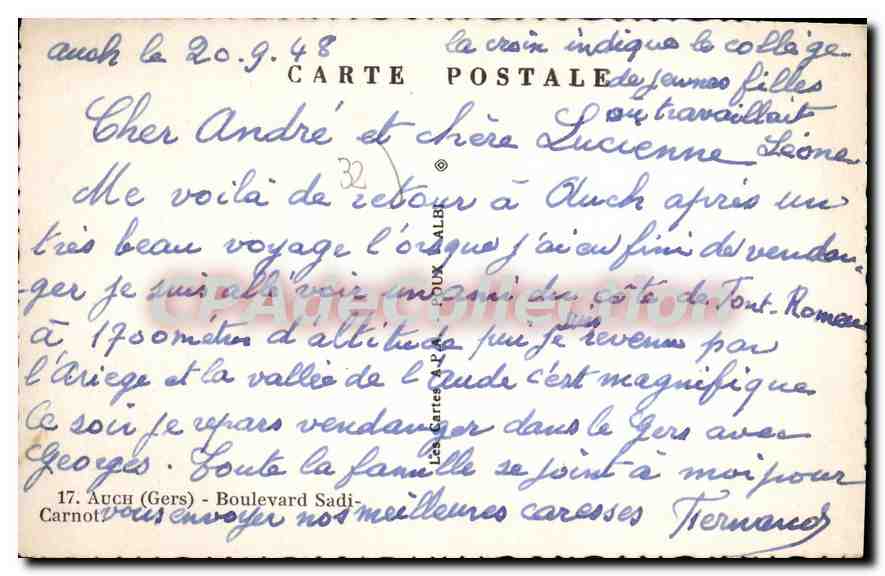 Auch le 20.9.48
la croix indique le collège
de jeunes filles
où travaillait
Léone
CARTE POSTALE
Cher André et chère Lucienne
32
Me voilà de retour à Auch après un
très beau voyage l'orsque j'ai eu fini de vendan-
-ger je suis allé voir un ami du côté de Font-Romeu
à 1700 mètres d'altitude puis je suis revenu par
l'Ariege et la vallée de l'Aude c'est magnifique
Ce soir je repars vendanger dans le Gers avec
Georges. Toute la famille se joint à moi pour
vous envoyer nos meilleures caresses Fernand
17. AUCH (Gers) - Boulevard Sadi-
Carnot.
Les Cartes A.P.A. - POUX - ALBI
CPADeCollection